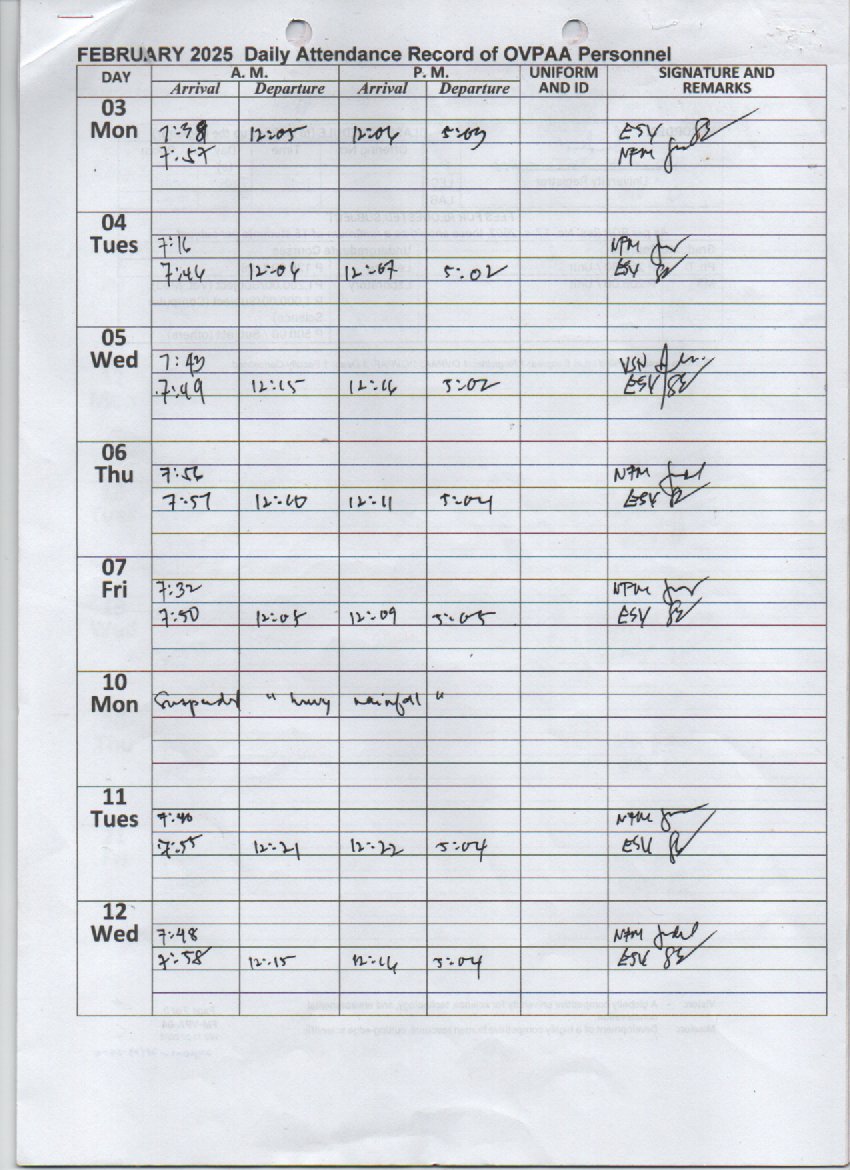 FEBRUARY 2025 Daily Attendance Record of OVPAA Personnel
DAY A. M. P. M. UNIFORM AND ID SIGNATURE AND REMARKS
Arrival Departure Arrival Departure
03 Mon
7:38 12:05 12:06 5:03 ESV
7:57 NFM
04 Tues
7:16 NFM
7:46 12:06 12:07 5:02 ESV
05 Wed
7:43 VSN
7:49 12:15 12:16 5:02 ESV
06 Thu
7:56 NFM
7:57 12:10 12:11 5:04 ESV
07 Fri
7:32 NFM
7:50 12:05 12:09 5:05 ESV
10 Mon
Suspended " heavy rainfall "
11 Tues
7:40 NFM
7:55 12:21 12:22 5:04 ESV
12 Wed
7:48 NFM
7:58 12:15 12:16 5:04 ESV